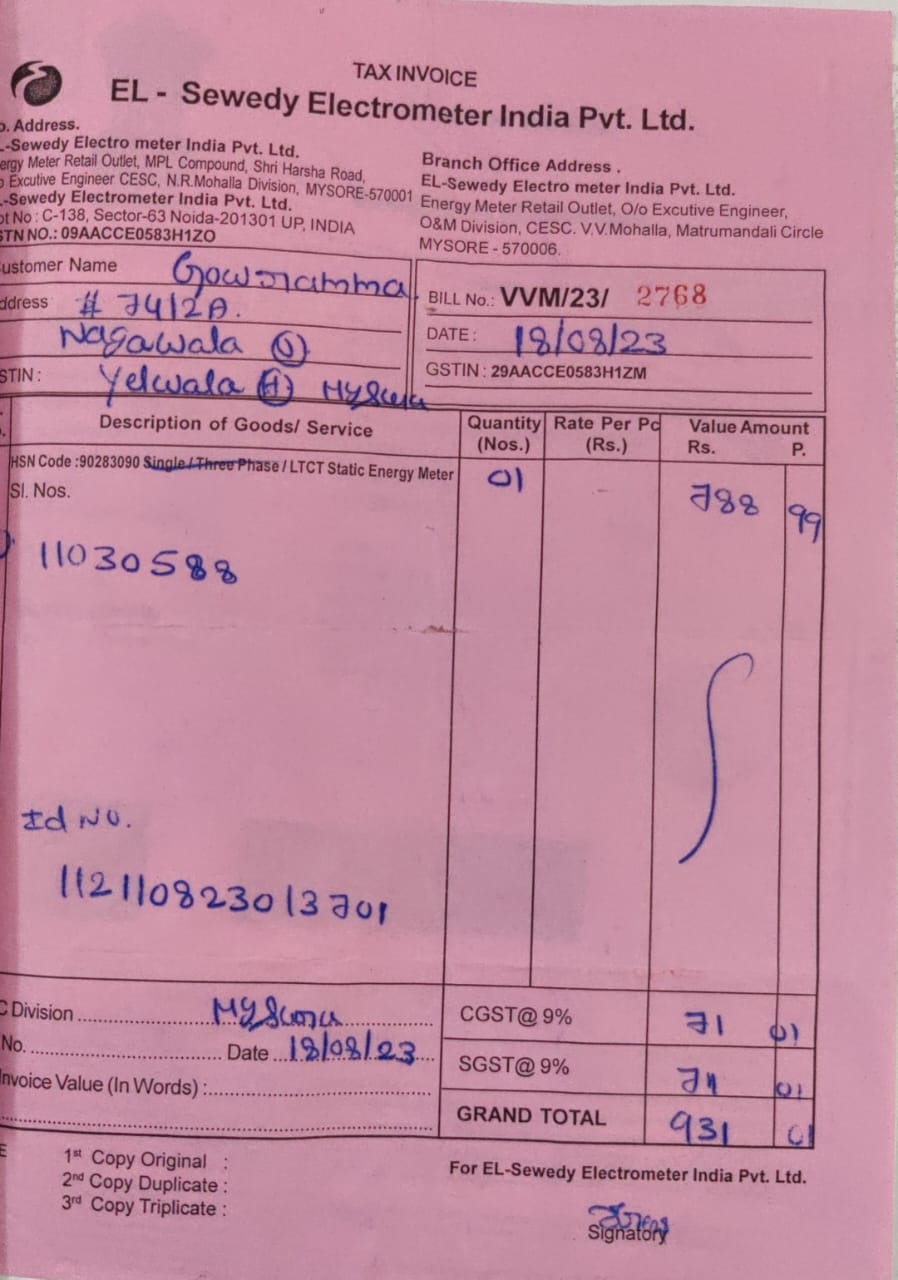 TAX INVOICE
EL - Sewedy Electrometer India Pvt. Ltd.
o. Address.
L-Sewedy Electro meter India Pvt. Ltd.
ergy Meter Retail Outlet, MPL Compound, Shri Harsha Road,
o Excutive Engineer CESC, N.R.Mohalla Division, MYSORE-570001
.-Sewedy Electrometer India Pvt. Ltd.
ot No : C-138, Sector-63 Noida-201301 UP, INDIA
STN NO.: 09AACCE0583H1ZO
Branch Office Address .
EL-Sewedy Electro meter India Pvt. Ltd.
Energy Meter Retail Outlet, O/o Excutive Engineer,
O&M Division, CESC. V.V.Mohalla, Matrumandali Circle
MYSORE - 570006.
ustomer Name Gowramma
ddress # 7412A.
Nagawala (V)
STIN : Yelwala (H) Mysuru
BILL No.: VVM/23/ 2768
DATE : 18/08/23
GSTIN : 29AACCE0583H1ZM
Description of Goods/ Service Quantity (Nos.) Rate Per Pc (Rs.) Value Amount Rs. P.
HSN Code :90283090 Single / Three Phase / LTCT Static Energy Meter 01 - 788 99
Sl. Nos.
11030588
Id No.
112110823013701
C Division .......... Mysuru ..........
No. .......... Date .. 18/08/23 ...
nvoice Value (In Words) : ..........
CGST@ 9% 71 01
SGST@ 9% 71 01
GRAND TOTAL 931 01
E
1st Copy Original :
2nd Copy Duplicate :
3rd Copy Triplicate :
For EL-Sewedy Electrometer India Pvt. Ltd.
Signatory